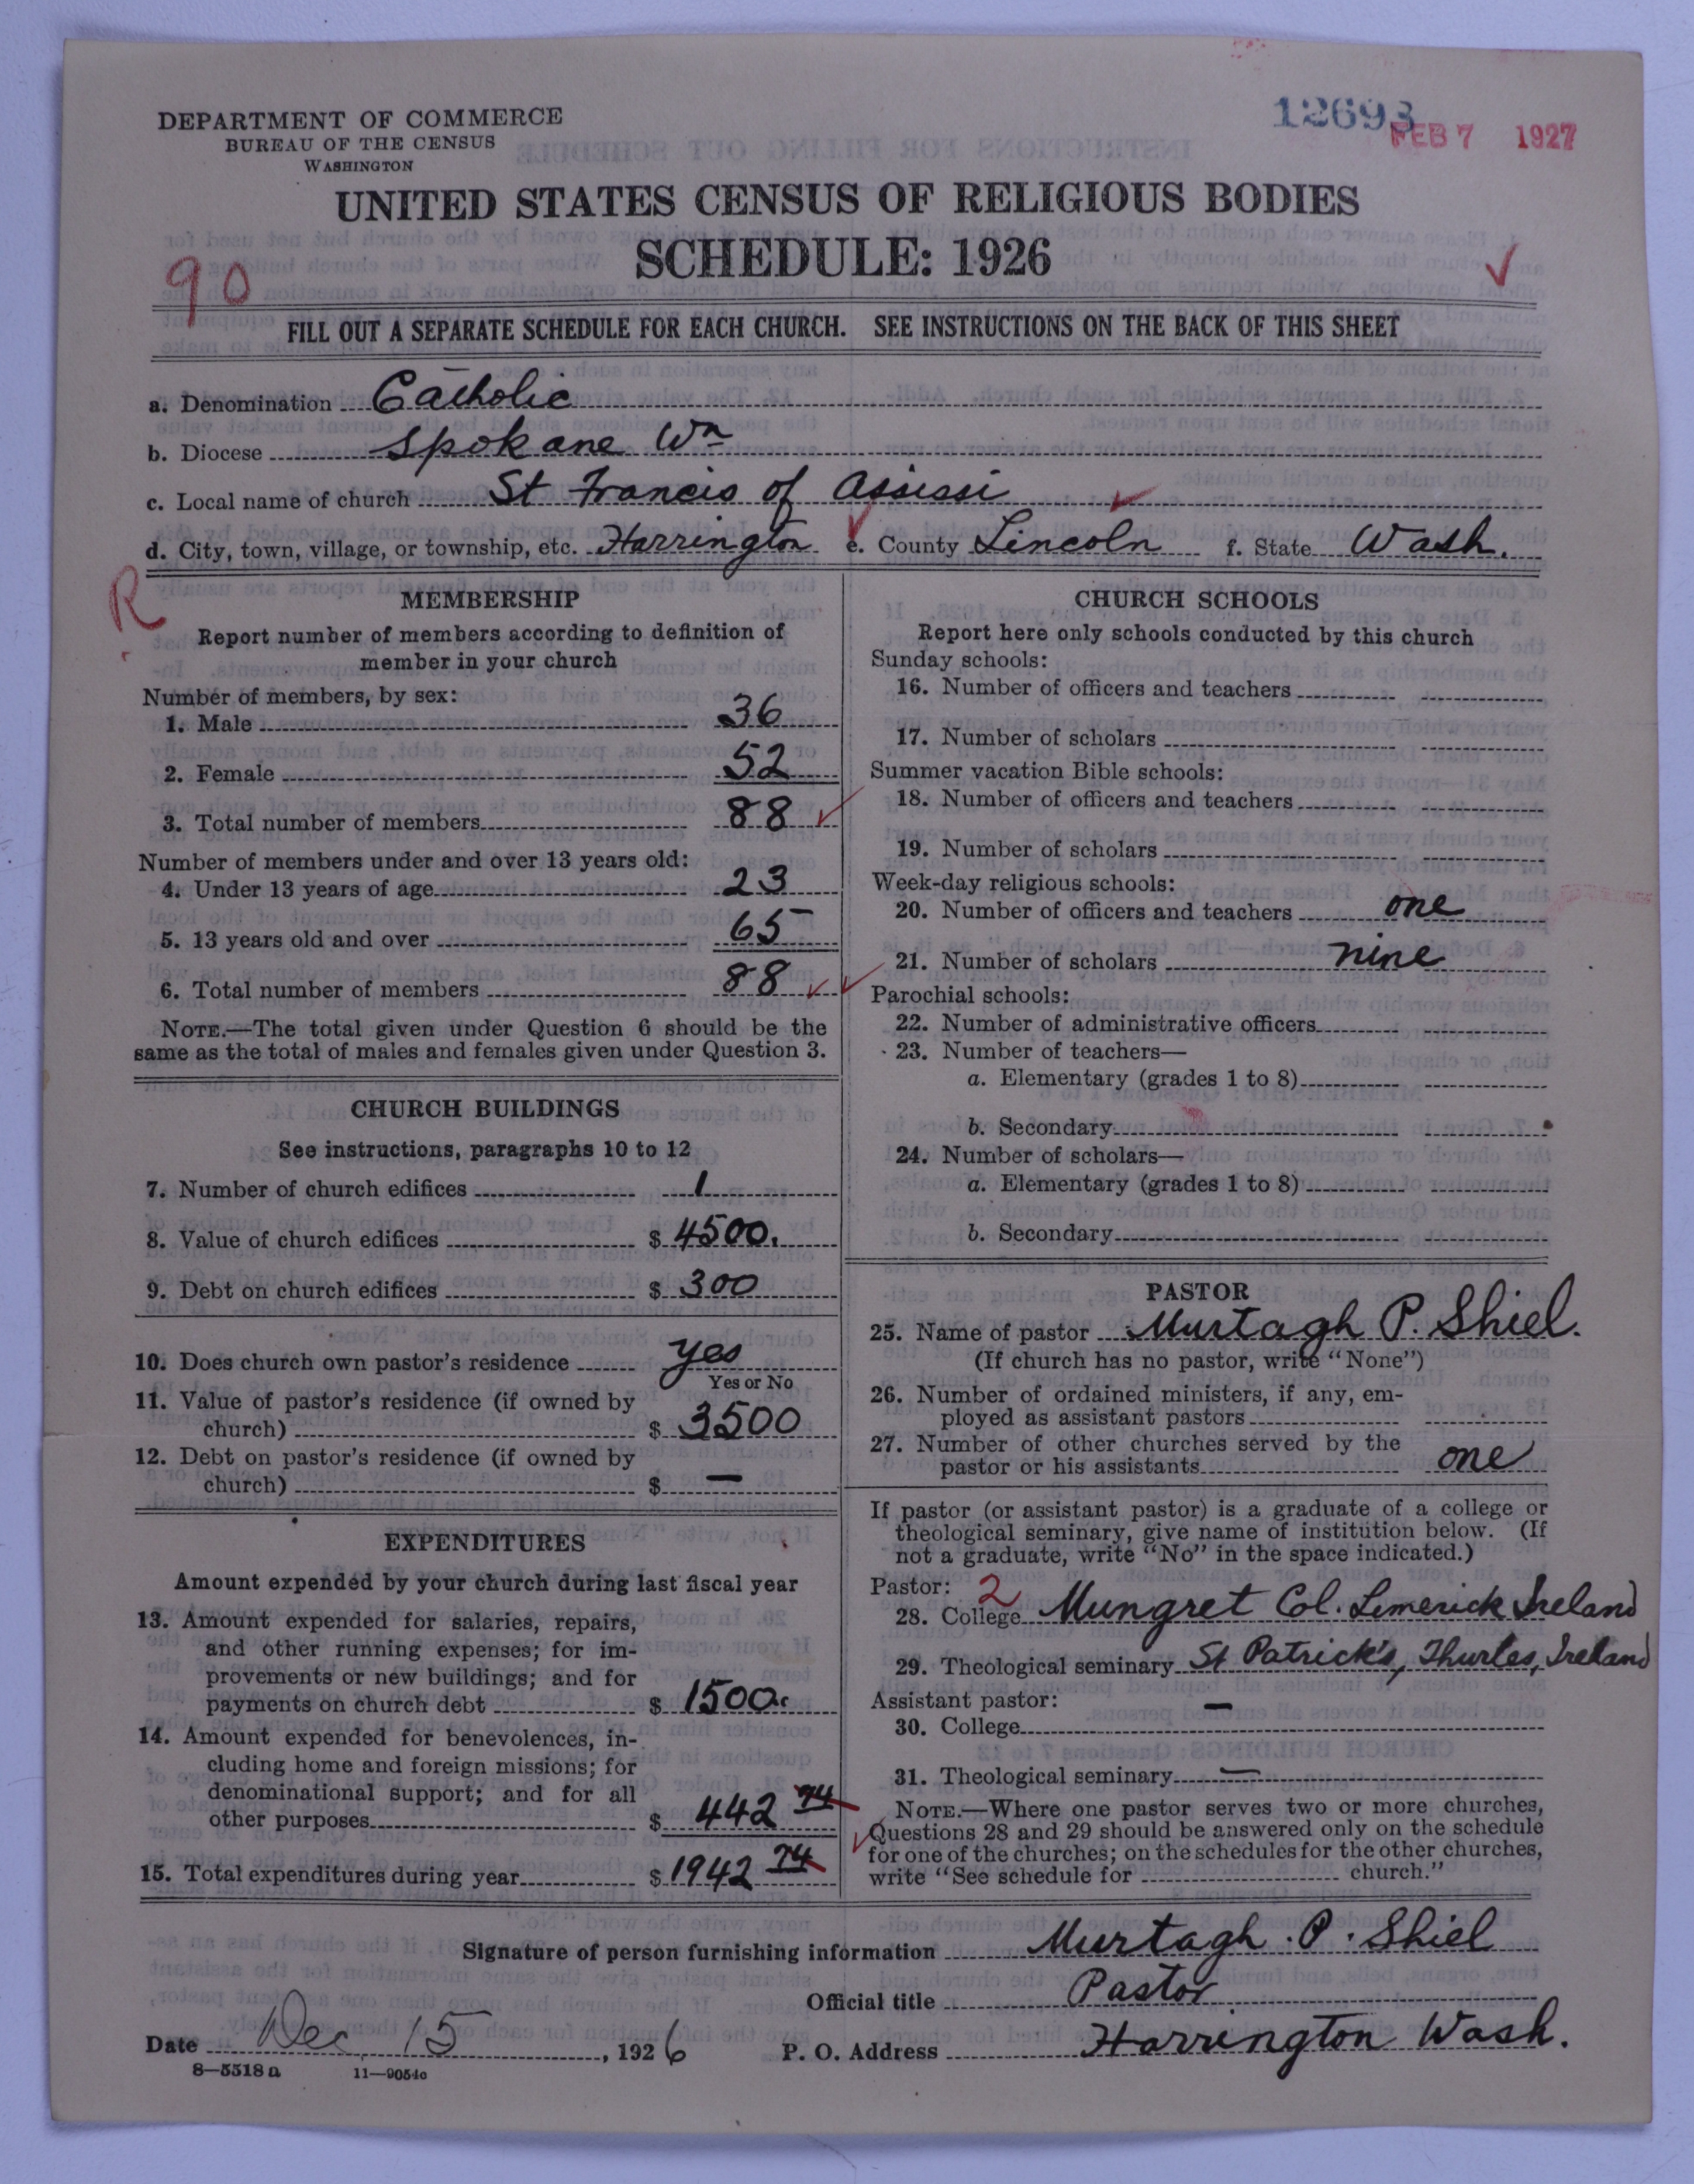 DEPARTMENT OF COMMERCE
BUREAU OF THE CENSUS
WASHINGTON
12693
FEB 7 1927
UNITED STATES CENSUS OF RELIGIOUS BODIES
SCHEDULE: 1926
90
FILL OUT A SEPARATE SCHEDULE FOR EACH CHURCH. SEE INSTRUCTIONS ON THE BACK OF THIS SHEET
a. Denomination Catholic
b. Diocese Spokane Wn
c. Local name of church St Francis of Assissi
d. City, town, village, or township, etc. Harrington e. County Lincoln f. State Wash.
R
MEMBERSHIP
Report number of members according to definition of
member in your church
Number of members, by sex:
1. Male 36
2. Female 52
3. Total number of members 88
Number of members under and over 13 years old:
4. Under 13 years of age 23
5. 13 years old and over 65
6. Total number of members 88
NOTE.—The total given under Question 6 should be the
same as the total of males and females given under Question 3.
CHURCH BUILDINGS
See instructions, paragraphs 10 to 12
7. Number of church edifices 1
8. Value of church edifices $ 4500.
9. Debt on church edifices $ 300
10. Does church own pastor's residence yes
Yes or No
11. Value of pastor's residence (if owned by
church) $ 3500
12. Debt on pastor's residence (if owned by
church) $ —
EXPENDITURES
Amount expended by your church during last fiscal year
13. Amount expended for salaries, repairs,
and other running expenses; for im-
provements or new buildings; and for
payments on church debt $ 1500.
14. Amount expended for benevolences, in-
cluding home and foreign missions; for
denominational support; and for all
other purposes $ 442 74
15. Total expenditures during year $ 1942 74
CHURCH SCHOOLS
Report here only schools conducted by this church
Sunday schools:
16. Number of officers and teachers
17. Number of scholars
Summer vacation Bible schools:
18. Number of officers and teachers
19. Number of scholars
Week-day religious schools:
20. Number of officers and teachers one
21. Number of scholars nine
Parochial schools:
22. Number of administrative officers
23. Number of teachers—
a. Elementary (grades 1 to 8)
b. Secondary
24. Number of scholars—
a. Elementary (grades 1 to 8)
b. Secondary
PASTOR
25. Name of pastor Murtagh P. Shiel.
(If church has no pastor, write "None")
26. Number of ordained ministers, if any, em-
ployed as assistant pastors
27. Number of other churches served by the
pastor or his assistants one
If pastor (or assistant pastor) is a graduate of a college or
theological seminary, give name of institution below. (If
not a graduate, write "No" in the space indicated.)
Pastor: 2
28. College Mungret Col. Limerick Ireland
29. Theological seminary St Patrick's, Thurles, Ireland
Assistant pastor: —
30. College
31. Theological seminary —
NOTE.—Where one pastor serves two or more churches,
Questions 28 and 29 should be answered only on the schedule
for one of the churches; on the schedules for the other churches,
write "See schedule for church."
Signature of person furnishing information Murtagh . P . Shiel
Official title Pastor
Date Dec 15, 1926 P. O. Address Harrington Wash.
8—5518 a 11—9054c